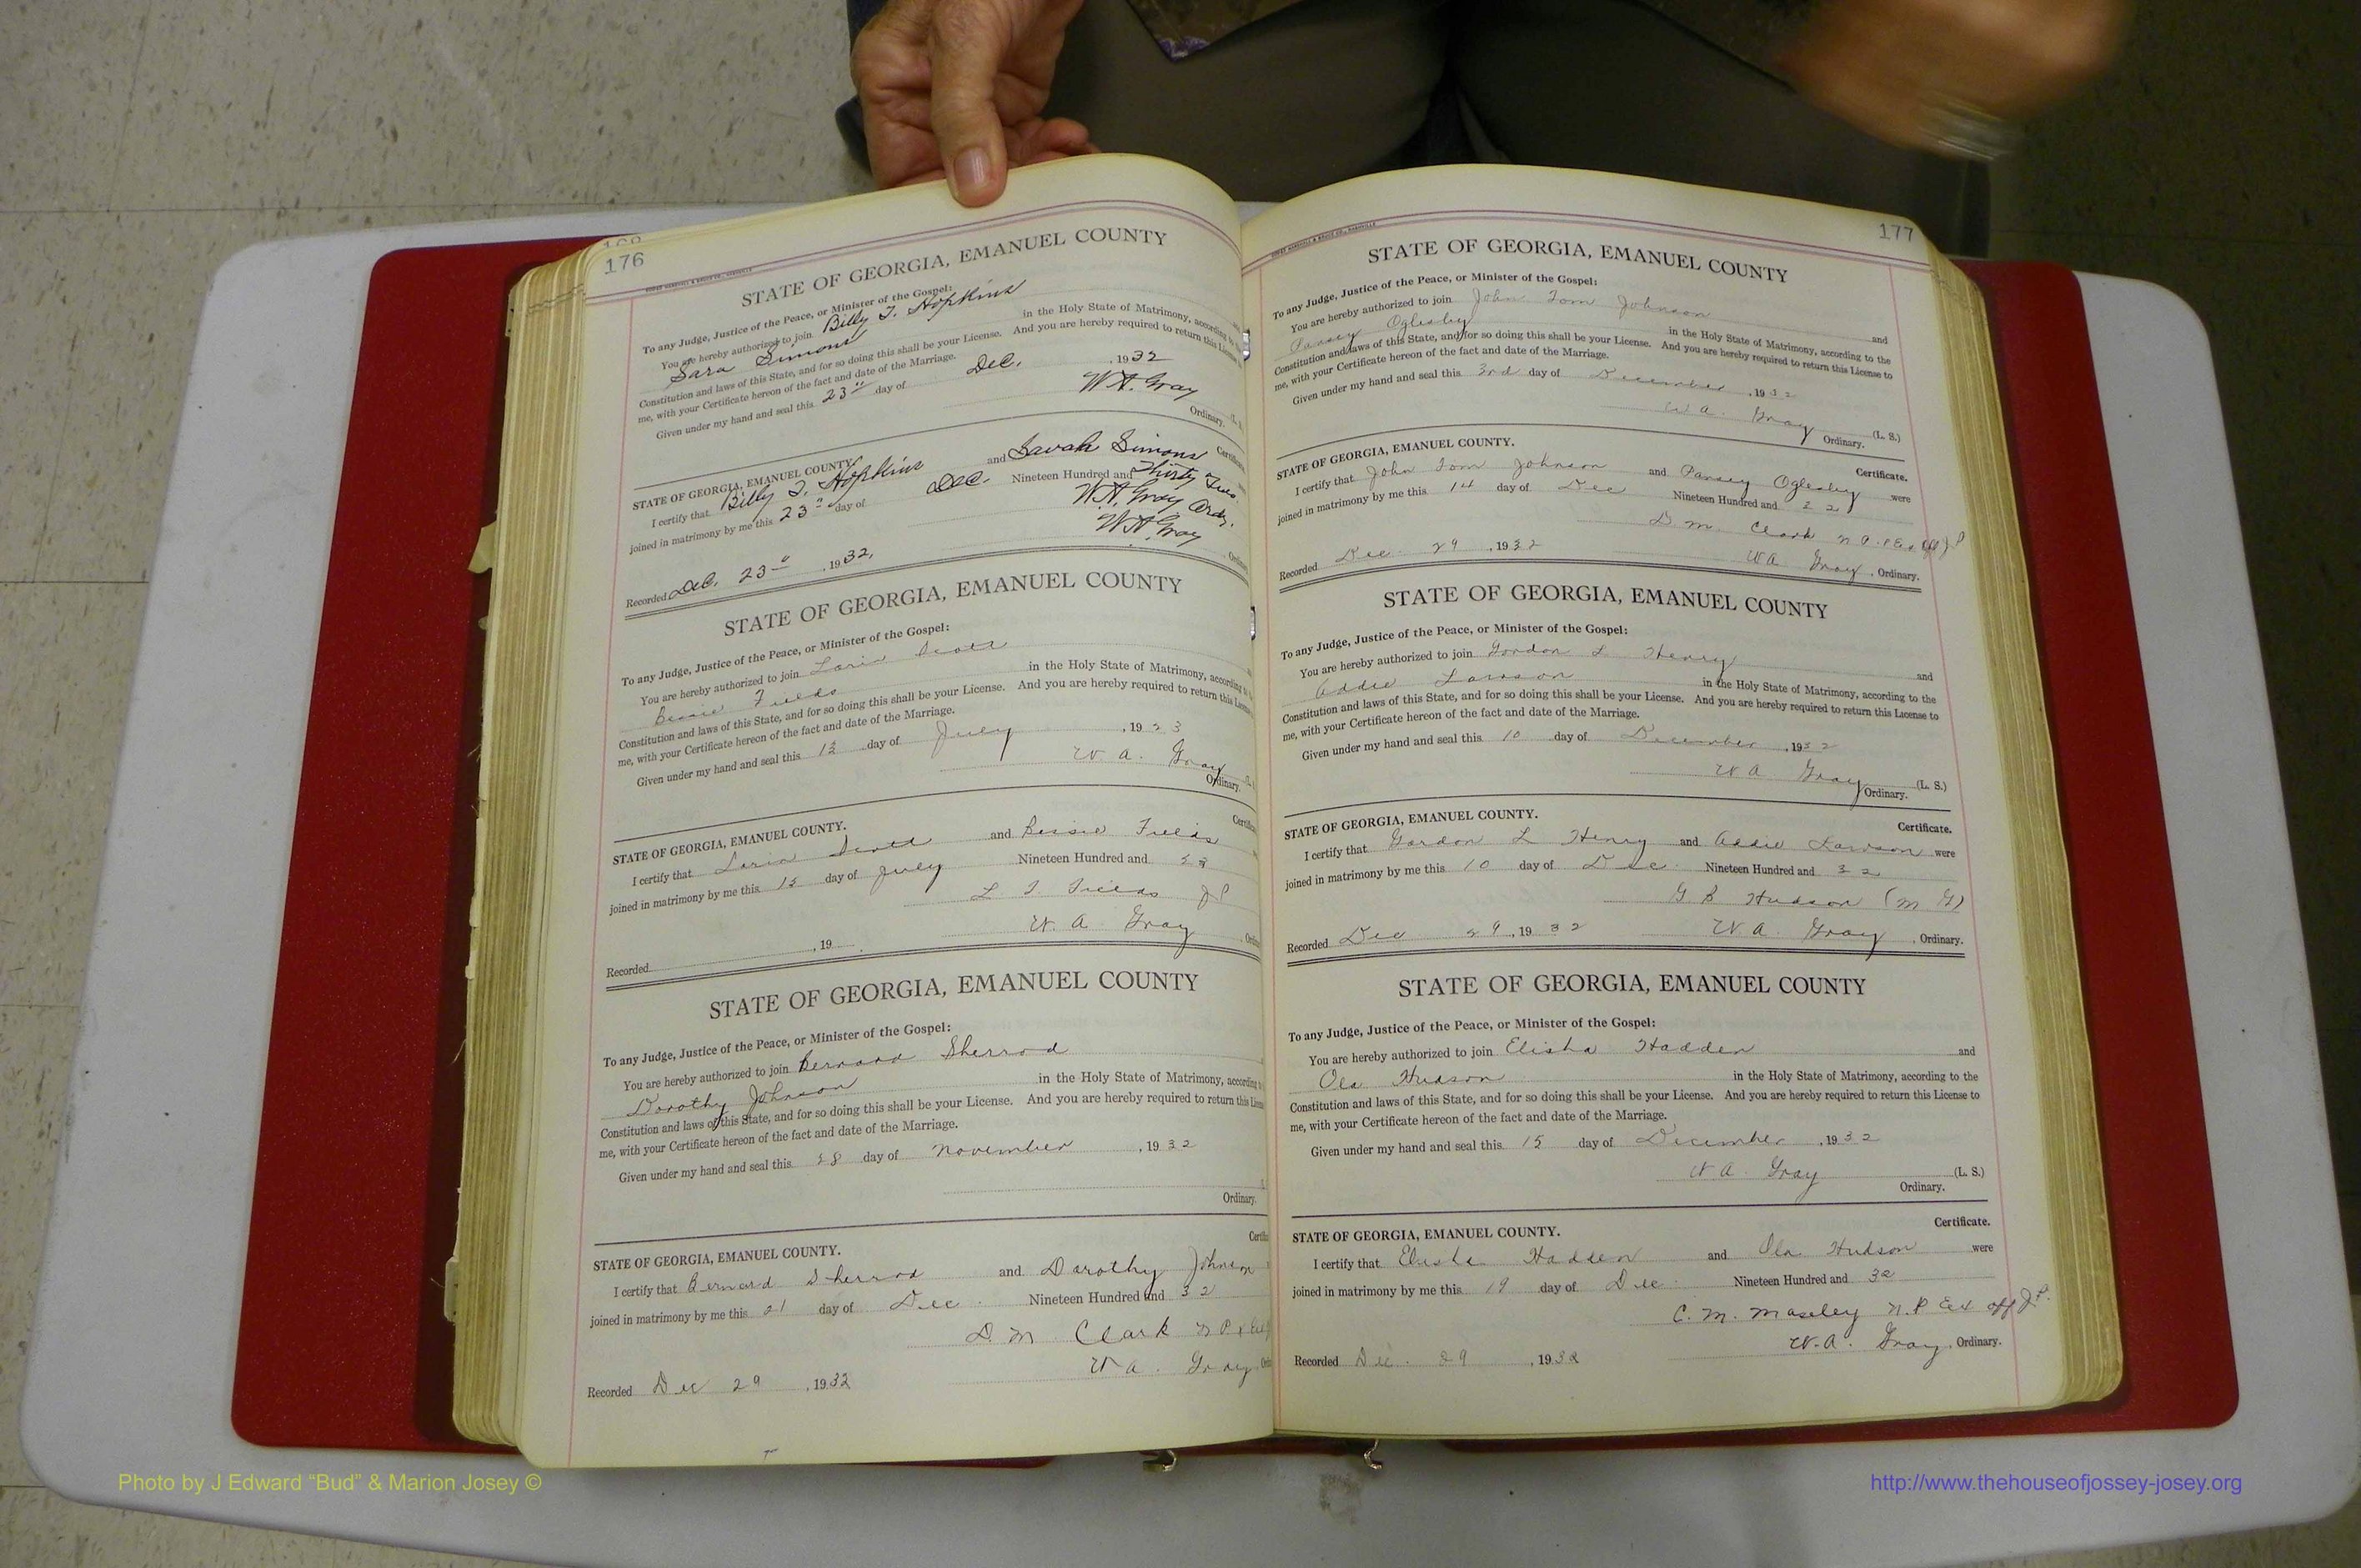 168
176
STATE OF GEORGIA, EMANUEL COUNTY
To any Judge, Justice of the Peace, or Minister of the Gospel:
You are hereby authorized to join Billy T. Hopkins
Sara Simons in the Holy State of Matrimony, according to
Constitution and laws of this State, and for so doing this shall be your License. And you are hereby required to return this
me, with your Certificate hereon of the fact and date of the Marriage.
Given under my hand and seal this 23" day of Dec. , 1932
W.A. Gray
Ordinary.
STATE OF GEORGIA, EMANUEL COUNTY.
I certify that Billy T. Hopkins and Sarah Simons
joined in matrimony by me this 23" day of Dec. Nineteen Hundred and Thirty Two
W.A. Gray Ordy.
Recorded Dec. 23" , 1932, W.A. Gray
STATE OF GEORGIA, EMANUEL COUNTY
To any Judge, Justice of the Peace, or Minister of the Gospel:
You are hereby authorized to join Scott
Bessie Fields in the Holy State of Matrimony, according to
Constitution and laws of this State, and for so doing this shall be your License. And you are hereby required to return this
me, with your Certificate hereon of the fact and date of the Marriage.
Given under my hand and seal this day of July , 19
W. A. Gray
Ordinary.
STATE OF GEORGIA, EMANUEL COUNTY.
I certify that Scott and Bessie Fields
joined in matrimony by me this 15 day of July Nineteen Hundred and
L T. Fields JP
W. A. Gray
Recorded , 19
STATE OF GEORGIA, EMANUEL COUNTY
To any Judge, Justice of the Peace, or Minister of the Gospel:
You are hereby authorized to join Bernard Sherrod
Dorothy Johnson in the Holy State of Matrimony, according
Constitution and laws of this State, and for so doing this shall be your License. And you are hereby required to return this
me, with your Certificate hereon of the fact and date of the Marriage.
Given under my hand and seal this 28 day of November , 1932
Ordinary.
STATE OF GEORGIA, EMANUEL COUNTY.
I certify that Bernard Sherrod and Dorothy Johnson
joined in matrimony by me this 21 day of Dec. Nineteen Hundred and 32
D. M Clark N P
W A. Gray
Recorded Dec 29 , 1932
177
STATE OF GEORGIA, EMANUEL COUNTY
To any Judge, Justice of the Peace, or Minister of the Gospel:
You are hereby authorized to join John Tom Johnson and
Pansey Oglesby in the Holy State of Matrimony, according to the
Constitution and laws of this State, and for so doing this shall be your License. And you are hereby required to return this License to
me, with your Certificate hereon of the fact and date of the Marriage.
Given under my hand and seal this 3rd day of December , 1932
W A. Gray (L. S.)
Ordinary.
STATE OF GEORGIA, EMANUEL COUNTY. Certificate.
I certify that John Tom Johnson and Pansey Oglesby were
joined in matrimony by me this 14 day of Dec Nineteen Hundred and 32
D. M. Clark
Recorded Dec. 29 , 1932 W A Gray , Ordinary.
STATE OF GEORGIA, EMANUEL COUNTY
To any Judge, Justice of the Peace, or Minister of the Gospel:
You are hereby authorized to join Gordon L Henry and
Addie Lawson in the Holy State of Matrimony, according to the
Constitution and laws of this State, and for so doing this shall be your License. And you are hereby required to return this License to
me, with your Certificate hereon of the fact and date of the Marriage.
Given under my hand and seal this 10 day of December , 1932
W A Gray (L. S.)
Ordinary.
STATE OF GEORGIA, EMANUEL COUNTY. Certificate.
I certify that Gordon L Henry and Addie Lawson were
joined in matrimony by me this 10 day of Dec. Nineteen Hundred and 32
G B Hudson (M G)
Recorded Dec 29 , 1932 W A Gray , Ordinary.
STATE OF GEORGIA, EMANUEL COUNTY
To any Judge, Justice of the Peace, or Minister of the Gospel:
You are hereby authorized to join Elisha Hadden and
Ola Hudson in the Holy State of Matrimony, according to the
Constitution and laws of this State, and for so doing this shall be your License. And you are hereby required to return this License to
me, with your Certificate hereon of the fact and date of the Marriage.
Given under my hand and seal this 15 day of December , 1932
W A. Gray (L. S.)
Ordinary.
STATE OF GEORGIA, EMANUEL COUNTY. Certificate.
I certify that Elisha Hadden and Ola Hudson were
joined in matrimony by me this 19 day of Dec. Nineteen Hundred and 32
C. M. Maseley N. P Ex off J.P.
Recorded Dec. 29 , 1932 W. A. Gray , Ordinary.
Photo by J Edward “Bud” & Marion Josey ©
http://www.thehouseofjossey-josey.org